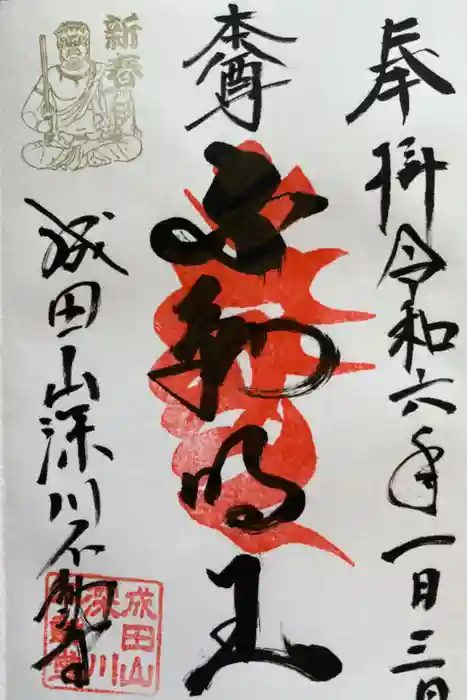 奉拝
令和六年一月三日
本尊
不動明王
新春
成田山深川不動尊
成田山
深川